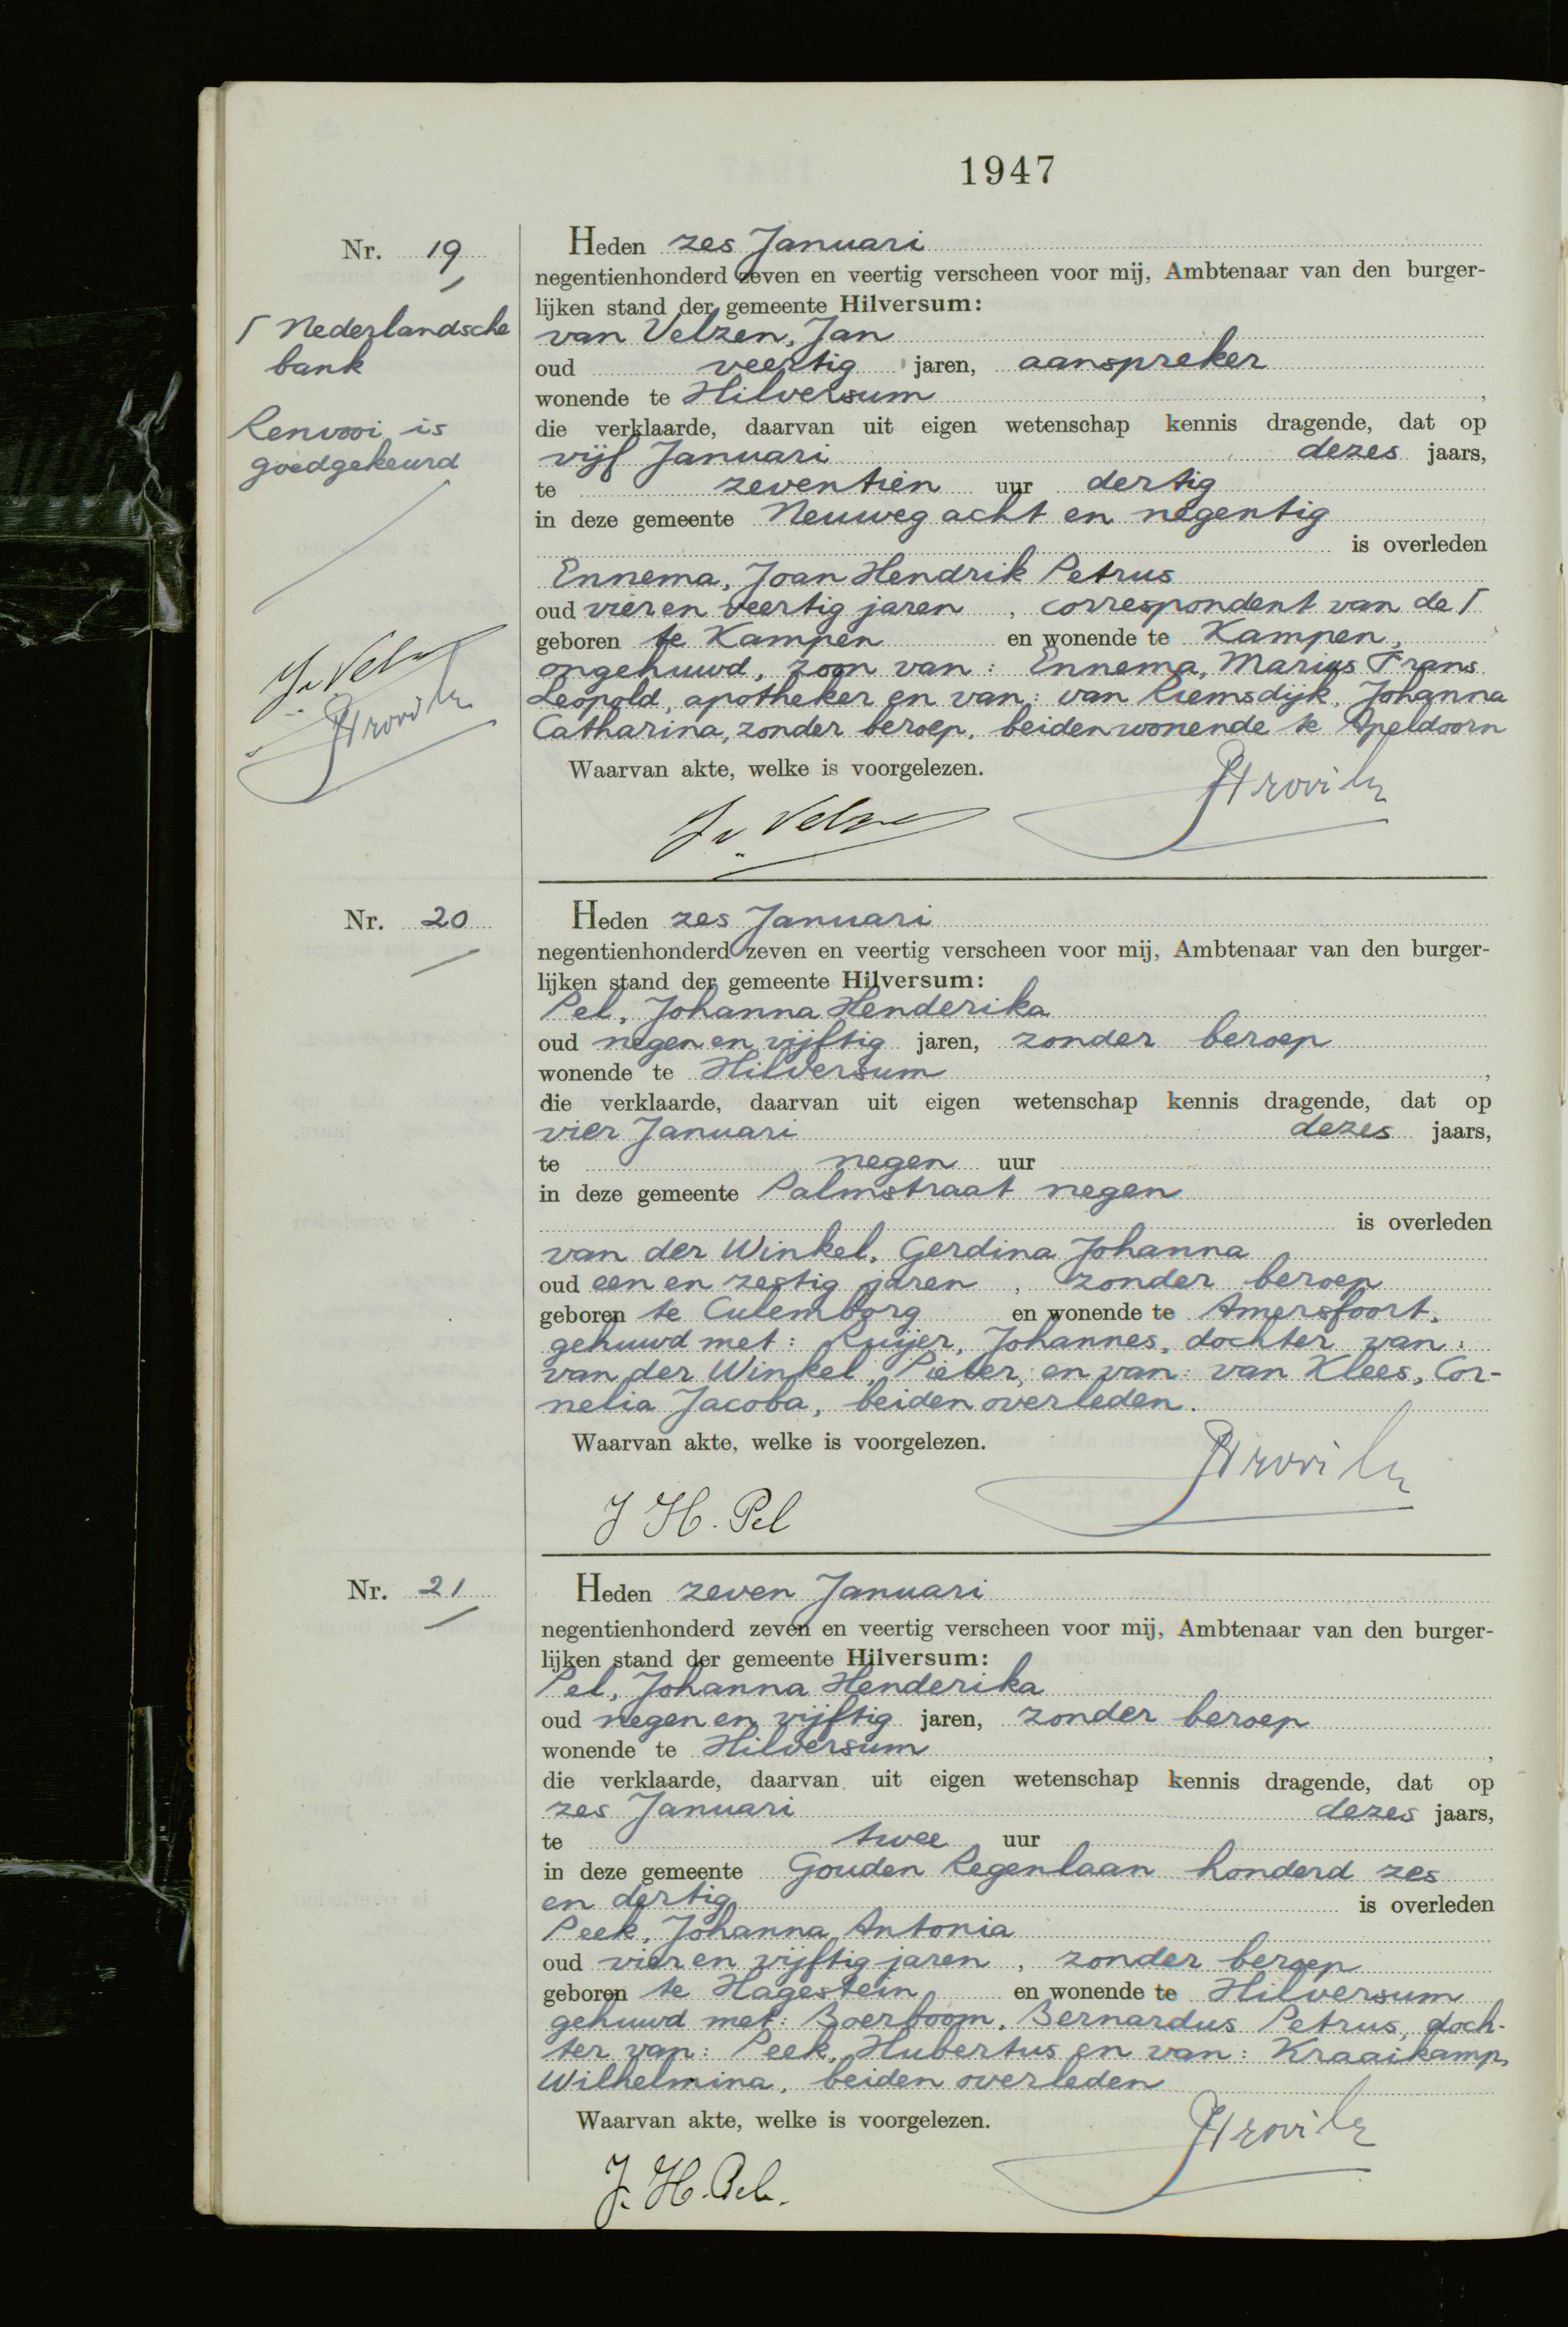 1947
Nr. 19
Γ Nederlandsche
bank
Renvooi is
goedgekeurd
J v Velzen
Heden zes Januari
negentienhonderd zeven en veertig verscheen voor mij, Ambtenaar van den burger-
lijken stand der gemeente Hilversum:
van Velzen, Jan
oud veertig jaren, aanspreker
wonende te Hilversum,
die verklaarde, daarvan uit eigen wetenschap kennis dragende, dat op
vijf Januari dezes jaars,
te zeventien uur dertig
in deze gemeente Neuweg acht en negentig
is overleden
Ennema, Joan Hendrik Petrus
oud vier en veertig jaren, correspondent van de Γ
geboren te Kampen en wonende te Kampen,
ongehuwd, zoon van: Ennema, Marius Frans
Leopold, apotheker en van: van Riemsdijk, Johanna
Catharina, zonder beroep, beiden wonende te Apeldoorn
Waarvan akte, welke is voorgelezen.
J v. Velzen
Nr. 20
Heden zes Januari
negentienhonderd zeven en veertig verscheen voor mij, Ambtenaar van den burger-
lijken stand der gemeente Hilversum:
Pel, Johanna Henderika
oud negen en vijftig jaren, zonder beroep
wonende te Hilversum,
die verklaarde, daarvan uit eigen wetenschap kennis dragende, dat op
vier Januari dezes jaars,
te negen uur
in deze gemeente Palmstraat negen
is overleden
van der Winkel, Gerdina Johanna
oud een en zestig jaren, zonder beroep
geboren te Culemborg en wonende te Amersfoort,
gehuwd met: Ruijer, Johannes, dochter van:
van der Winkel, Pieter, en van: van Klees, Cor-
nelia Jacoba, beiden overleden.
Waarvan akte, welke is voorgelezen.
J H. Pel
Nr. 21
Heden zeven Januari
negentienhonderd zeven en veertig verscheen voor mij, Ambtenaar van den burger-
lijken stand der gemeente Hilversum:
Pel, Johanna Henderika
oud negen en vijftig jaren, zonder beroep
wonende te Hilversum,
die verklaarde, daarvan uit eigen wetenschap kennis dragende, dat op
zes Januari dezes jaars,
te twee uur
in deze gemeente Gouden Regenlaan honderd zes
en dertig is overleden
Peek, Johanna Antonia
oud vier en vijftig jaren, zonder beroep
geboren te Hagestein en wonende te Hilversum
gehuwd met: Boerboom, Bernardus Petrus, doch-
ter van: Peek, Hubertus en van: Kraaikamp,
Wilhelmina, beiden overleden
Waarvan akte, welke is voorgelezen.
J. H. Pel.